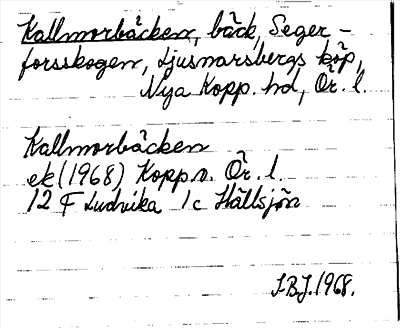 Kallmorbäcken, bäck, Seger-
forsskogen, Ljusnarsbergs köp,
Nya Kopp. hd, Ör. l.
Kallmorbäcken
ek (1968) Kopp.v. Ör. l.
12 F Ludvika 1c Hällsjön
S.B.J. 1968.